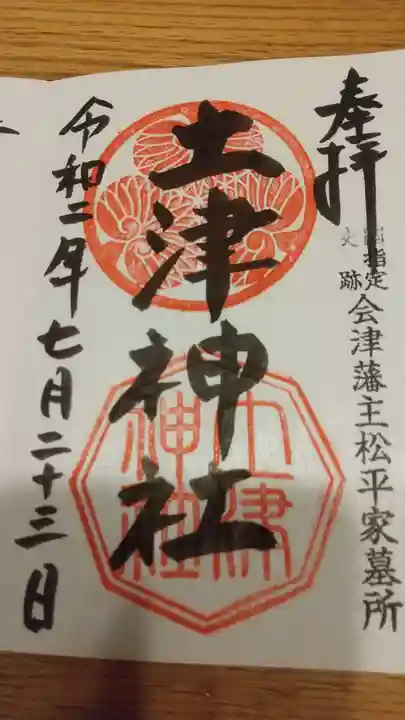 奉拝
国指定史跡
会津藩主松平家墓所
土津神社
土津神社
令和二年七月二十三日